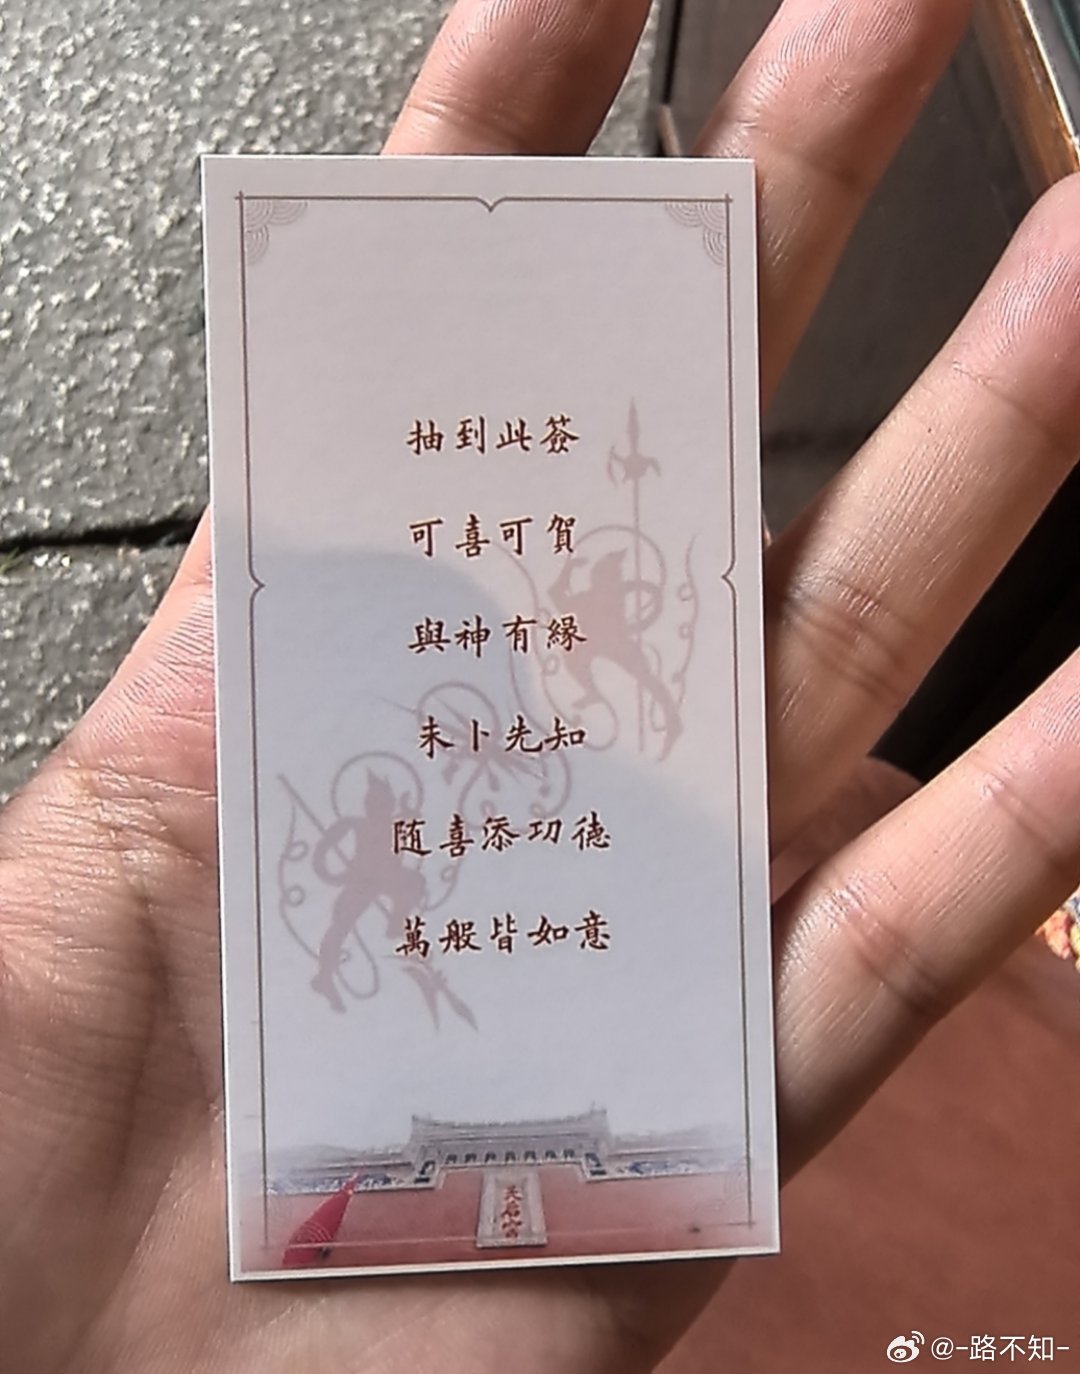 抽到此簽
可喜可賀
與神有緣
未卜先知
随喜添功德
萬般皆如意
天后宮
@-路不知-